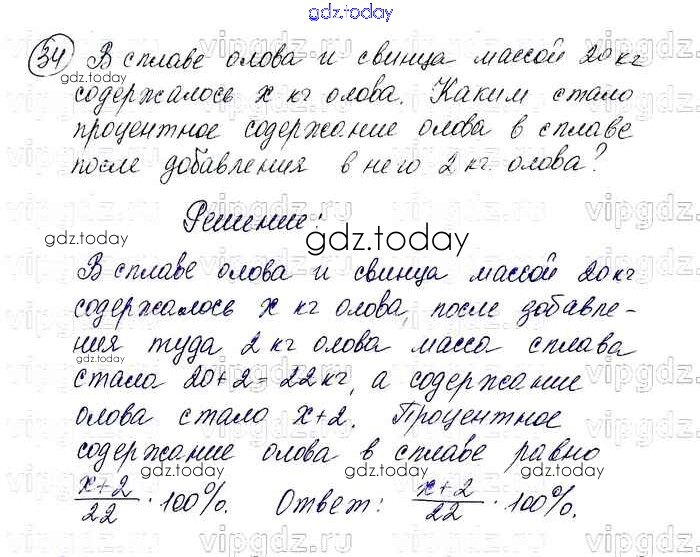 gdz.today
34 В сплаве олова и свинца массой 20 кг
содержалось x кг олова. Каким стало
процентное содержание олова в сплаве
после добавления в него 2 кг. олова?
Решение:
В сплаве олова и свинца массой 20 кг
содержалось x кг олова, после зобавле-
ния туда 2 кг олова масса сплава
стала 20+2=22 кг, а содержание
олова стало x+2. Процентное
содержание олова в сплаве равно
x+2/22 · 100%. Ответ: x+2/22 · 100%.